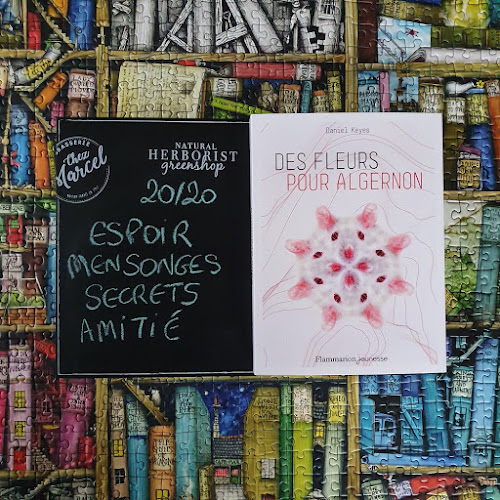 BRASSERIE
Chez
Marcel
NATURAL
HERBORIST
greenshop
20/20
ESPOIR
MENSONGES
SECRETS
AMITIÉ
Daniel Keyes
DES FLEURS
POUR ALGERNON
Flammarion jeunesse